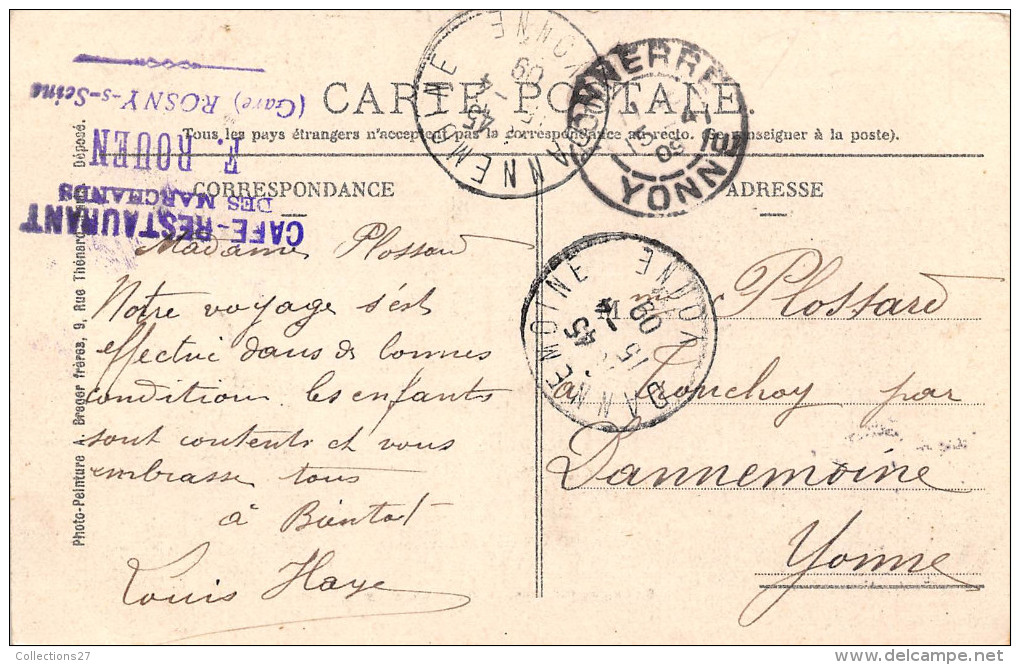 CARTE POSTALE.
Tous les pays étrangers n'acceptent pas la correspondance au recto. (Se renseigner à la poste).
CORRESPONDANCE
Madame Plossard
Notre voyage s'est
effectué dans de bonnes
conditions les enfants
sont contents et vous
embrasse tous
à Bientot
Louis Haye
ADRESSE
M
Plossard
a Tonchoy par
Dannemoine
Yonne
Photo-Peinture A. Breger frères, 9, Rue Thénard
Déposé.
CAFE-RESTAURANT
DES MARCHANDS
F. ROUEN
(Gare) ROSNY-s-Seine
DANNEMOINE YONNE
45
09
TONNERRE
YONNE
09
DANNEMOINE YONNE
15
45
09
Collections27
delcampe.net